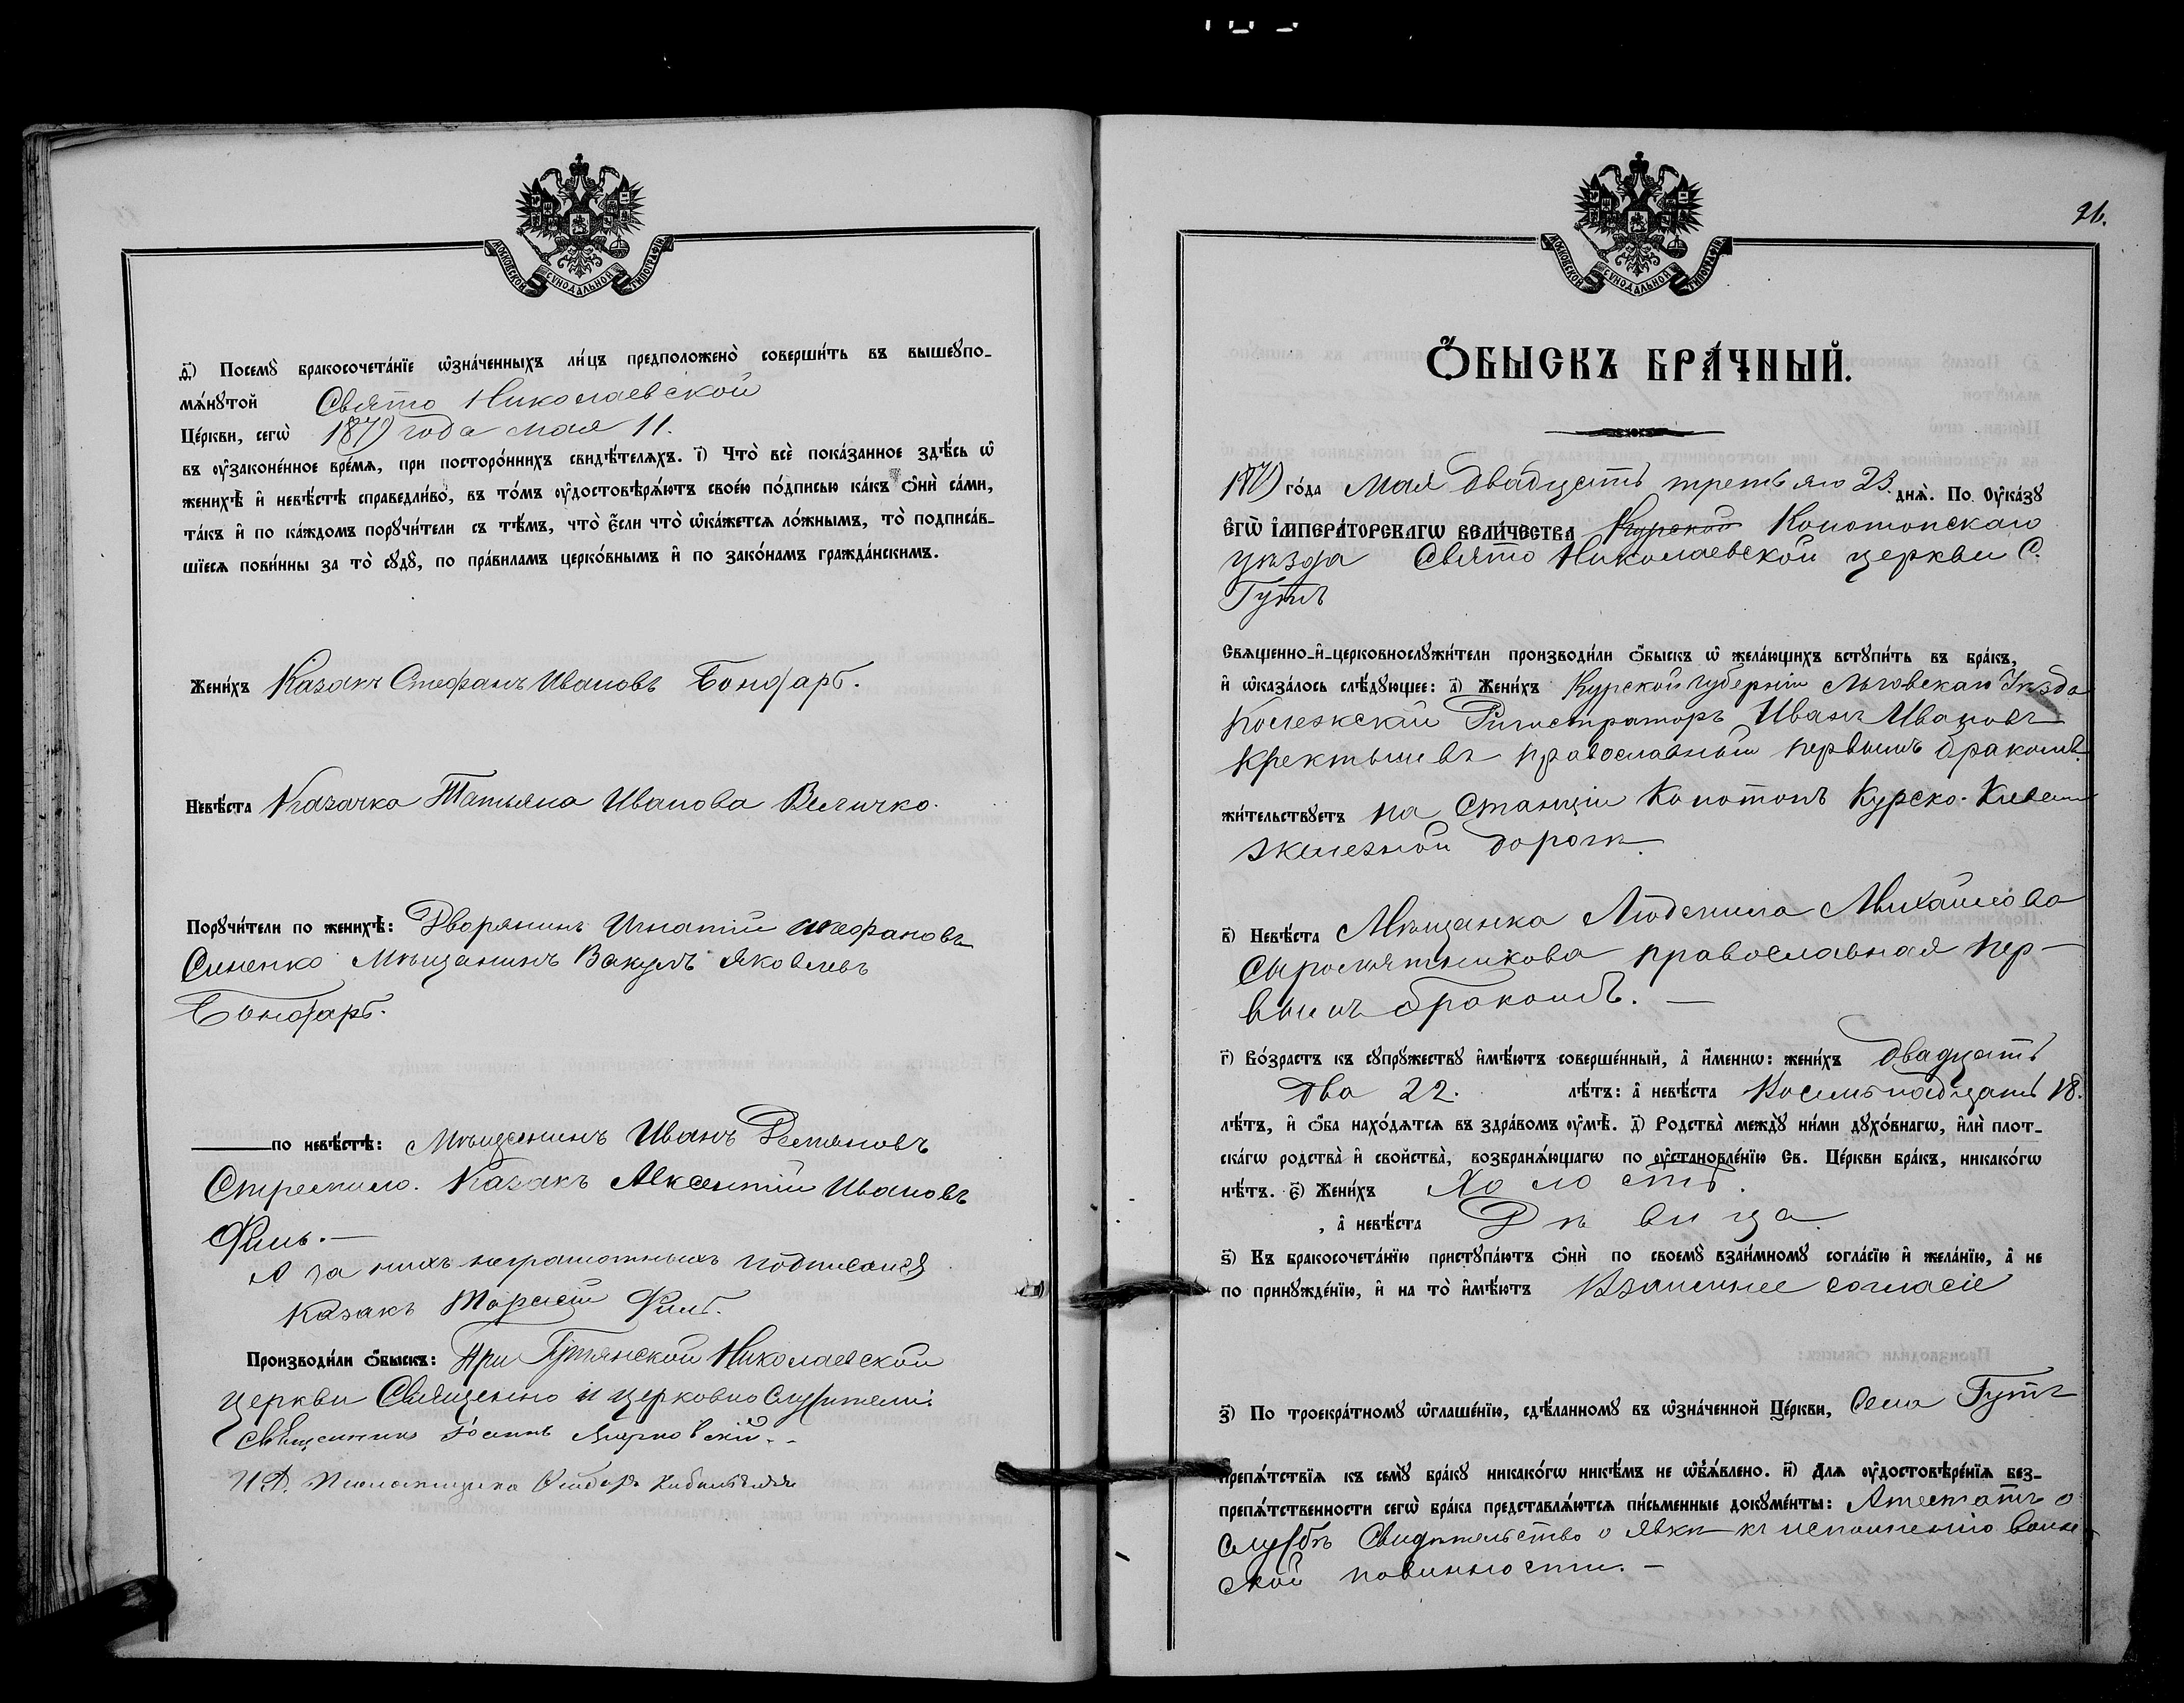 МОСКОВСКОЙ СУНОДАЛЬНОЙ ТИПОГРАФІИ
д҃) Посемꙋ̀ бракосочета́нїе ѡ҆зна́ченныхъ ли́цъ предположено̀ соверши́ть въ вышеꙋпо-
мѧ́нꙋтой Свято Николаевской
Це́ркви, сегѡ̀ года мая 11.
въ ᲂу҆законе́нное вре́мѧ, при посторо́ннихъ свидѣ́телѧхъ. і҃) Что̀ всѐ пока́занное здѣ́сь ѡ҆
женихѣ̀ и҆ невѣ́стѣ справедли́во, въ то́мъ ᲂу҆достовѣрѧ́ютъ свое́ю по́дписью ка́къ ѻ҆нѝ са́ми,
та́къ и҆ по ка́ждомъ порꙋчи́тели съ тѣ́мъ, что̀ є҆́сли что̀ ѡ҆ка́жетсѧ ло́жнымъ, то̀ подписа́в-
шїесѧ пови́нны за то̀ сꙋдꙋ̀, по пра́виламъ церко́внымъ и҆ по зако́намъ гражда́нскимъ.
Жени́хъ Казакъ Стефанъ Ивановъ Бондарь.
Невѣ́ста Казачка Татьяна Иванова Величко.
Порꙋчи́тели по женихѣ̀: Дворянинъ Игнатій Стефановъ
Синенко Мѣщанинъ Вакулъ Яковлевъ
Бондарь.
по невѣ́стѣ: Мѣщанинъ Иванъ
Казакъ Авксентій Ивановъ
Филь.—
А за нихъ неграмотныхъ подписался
казакъ Филь.
Производи́ли ѻ҆́быскъ: При Гутянской Николаевской
церкви Священно и церковно служители:
Священникъ Іоаннъ
И. Д. Псаломщика
МОСКОВСКОЙ СУНОДАЛЬНОЙ ТИПОГРАФІИ
26.
Ѻ҆́БЫСКЪ БРА́ЧНЫЙ.
го́да Мая двадцать третьяго 23. днѧ̀. По ᲂу҆ка́зꙋ
Є҆ГѠ̀ И҆МПЕРА́ТОРСКАГѠ ВЕЛИ́ЧЕСТВА Курской Конотопскаго
уѣзда Свято Николаевской церкви С.
Гутъ
Свѧще́нно-и҆-церковнослꙋжи́тели производи́ли ѻ҆́быскъ ѡ҆ жела́ющихъ встꙋпи́ть въ бра́къ,
и҆ ѡ҆каза́лось слѣ́дꙋющее: а҃) Жени́хъ Курской губерніи Льговскаго Уѣзда
Колежскій Регистраторъ Иванъ Ивановъ
православный первымъ бракомъ.
жи́тельствꙋетъ на Станціи Конотопъ Курско-Кіевск
железной дороги.
в҃) Невѣ́ста Мѣщанка Людмила Михайлова
Сыромятникова православная пер-
вымъ бракомъ.—
г҃) Во́зрастъ къ сꙋпрꙋ́жествꙋ и҆мѣ́ютъ соверше́нный, а҆ и҆́меннѡ: жени́хъ двадцать
два 22. лѣ́тъ: а҆ невѣ́ста Восемьнадцать 18.
лѣ́тъ, и҆ ѻ҆́ба нахо́дѧтсѧ въ здра́вомъ ᲂу҆мѣ̀. д҃) Родства̀ междꙋ̀ ни́ми дꙋхо́внагѡ, и҆лѝ плот-
ска́гѡ родства̀ и҆ свойства̀, возбранѧ́ющагѡ по ᲂу҆становле́нїю Св. Це́ркви бра́къ, никако́гѡ
нѣ́тъ. є҃) Жени́хъ Холостъ.
, а҆ невѣ́ста Дѣвица
ѕ҃) Къ бракосочета́нїю пристꙋпа́ютъ ѻ҆нѝ по своемꙋ̀ взаи́мномꙋ согла́сїю и҆ жела́нїю, а҆ не
по принꙋжде́нїю, и҆ на то̀ и҆мѣ́ютъ Взаимное согласіе
з҃) По троекра́тномꙋ ѡ҆глаше́нїю, сдѣ́ланномꙋ въ ѡ҆зна́ченной Це́ркви, Села Гутъ
препѧ́тствїѧ къ семꙋ̀ бра́кꙋ никако́гѡ никѣ́мъ не ѡ҆б̾ѧ́влено. и҃) Длѧ ᲂу҆достовѣре́нїѧ без-
препѧ́тственности сегѡ̀ бра́ка представлѧ́ютсѧ пи́сьменные докꙋме́нты: Атестатъ о
службѣ Свидѣтельство о явкѣ къ исполненію воин
ской повинности.—